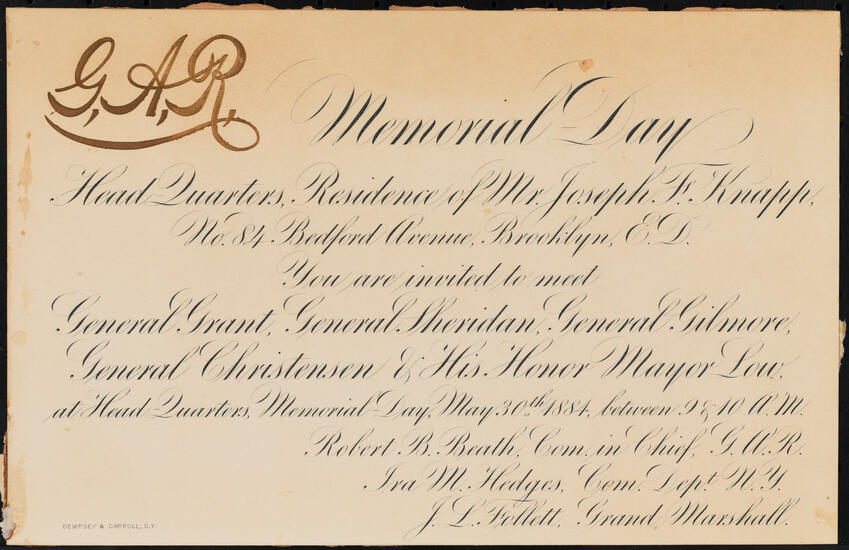 G.A.R.
Memorial-Day
Head-Quarters, Residence of Mr. Joseph F. Knapp,
No. 84 Bedford Avenue, Brooklyn, E.D.
You are invited to meet
General Grant, General Sheridan, General Gilmore,
General Christensen & His Honor Mayor Low,
at Head-Quarters, Memorial-Day, May 30th 1884, between 9 & 10 A.M.
Robert B. Beath, Com. in Chief, G.A.R.
Ira M. Hedges, Com. Dept. N.Y.
J. L. Follett, Grand Marshall.
DEMPSEY & CARROLL, N.Y.